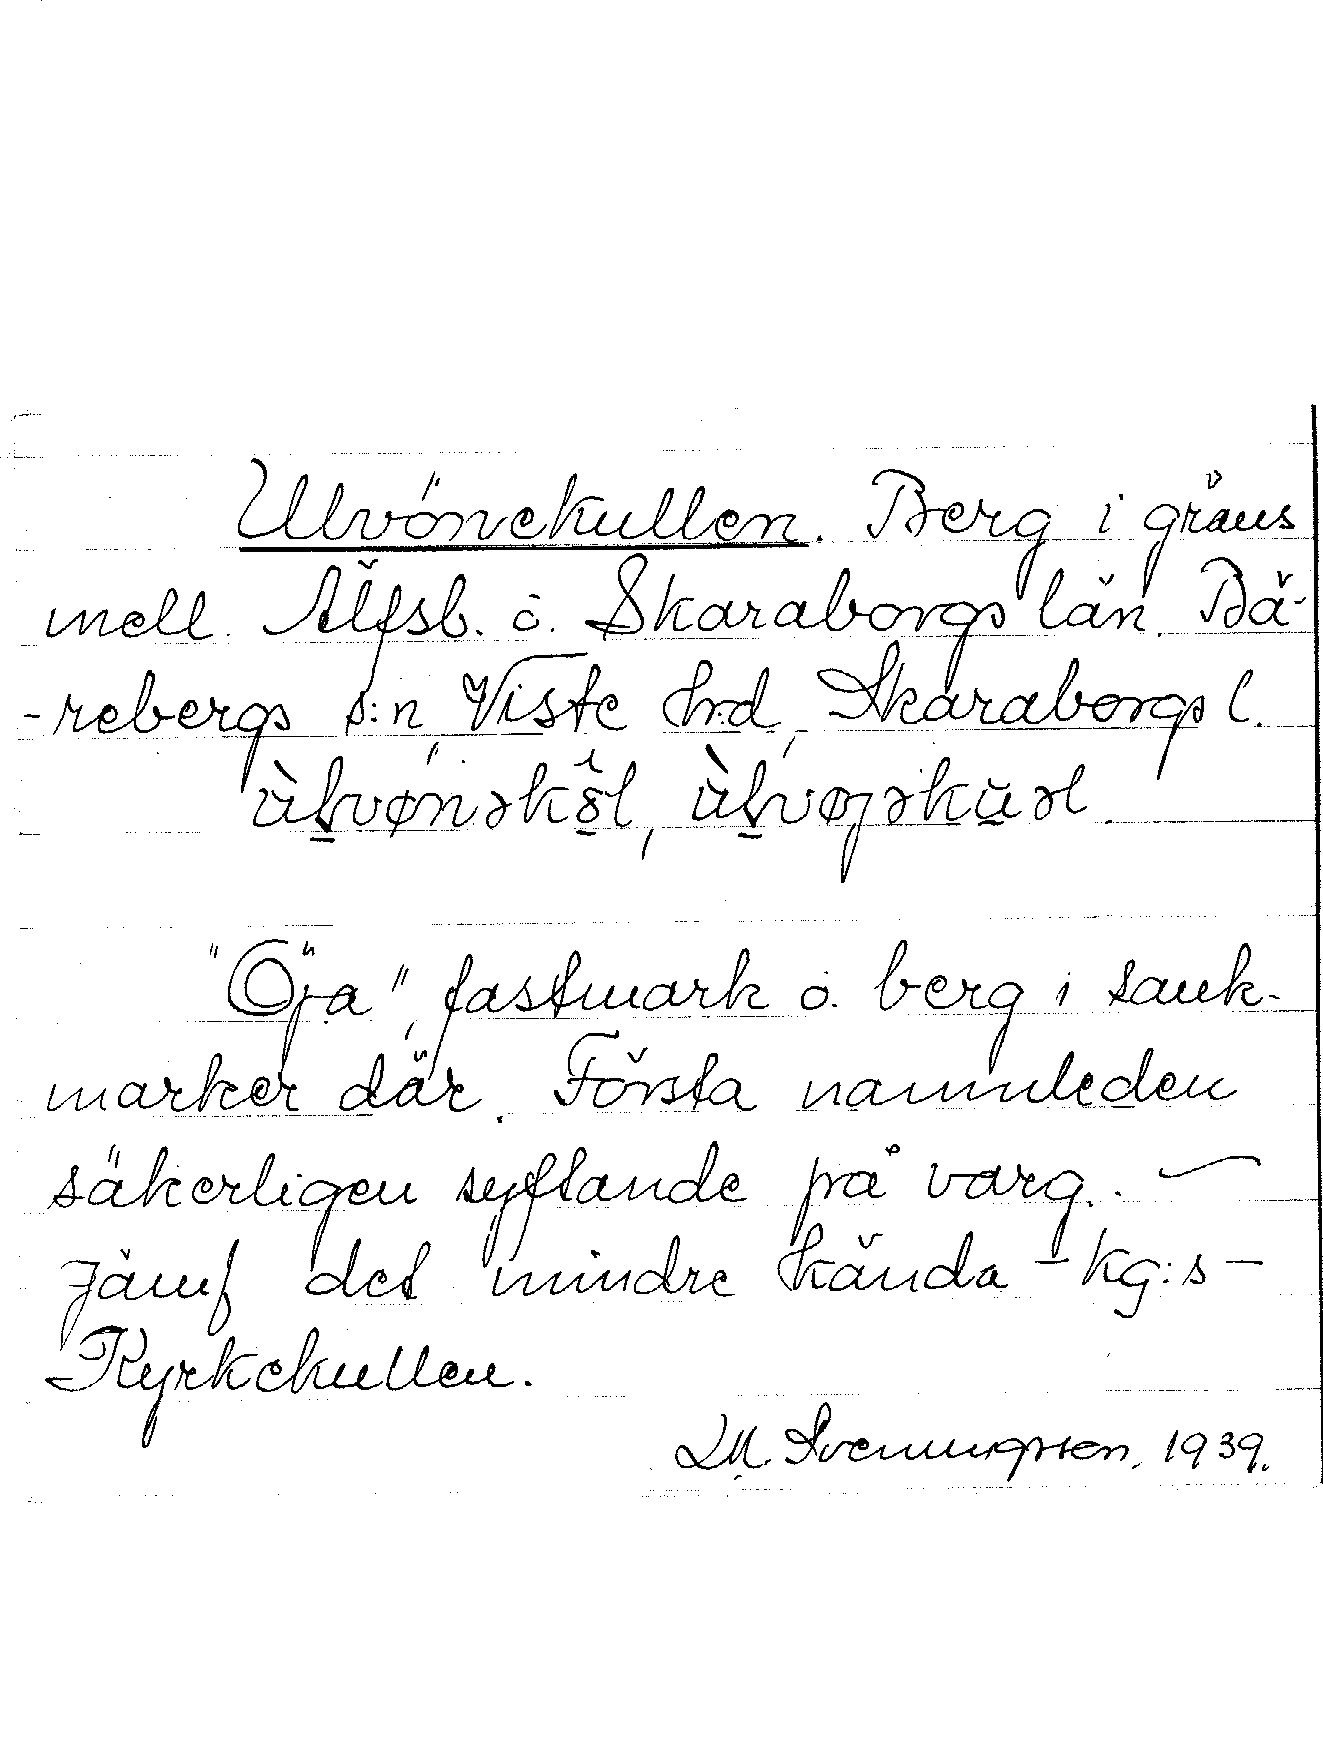 Ulvönekullen. Berg i gräns
mell. Älfsb. o. Skaraborgs län. Bä-
-rebergs s:n, Viste hrd, Skaraborgs l.
"Öja", fastmark o. berg i sank-
marker där. Första namnleden
säkerligen syftande på varg. —
Jämf det mindre kända – Kg:s –
Kyrkekullen.
Svenungsson, 1939.